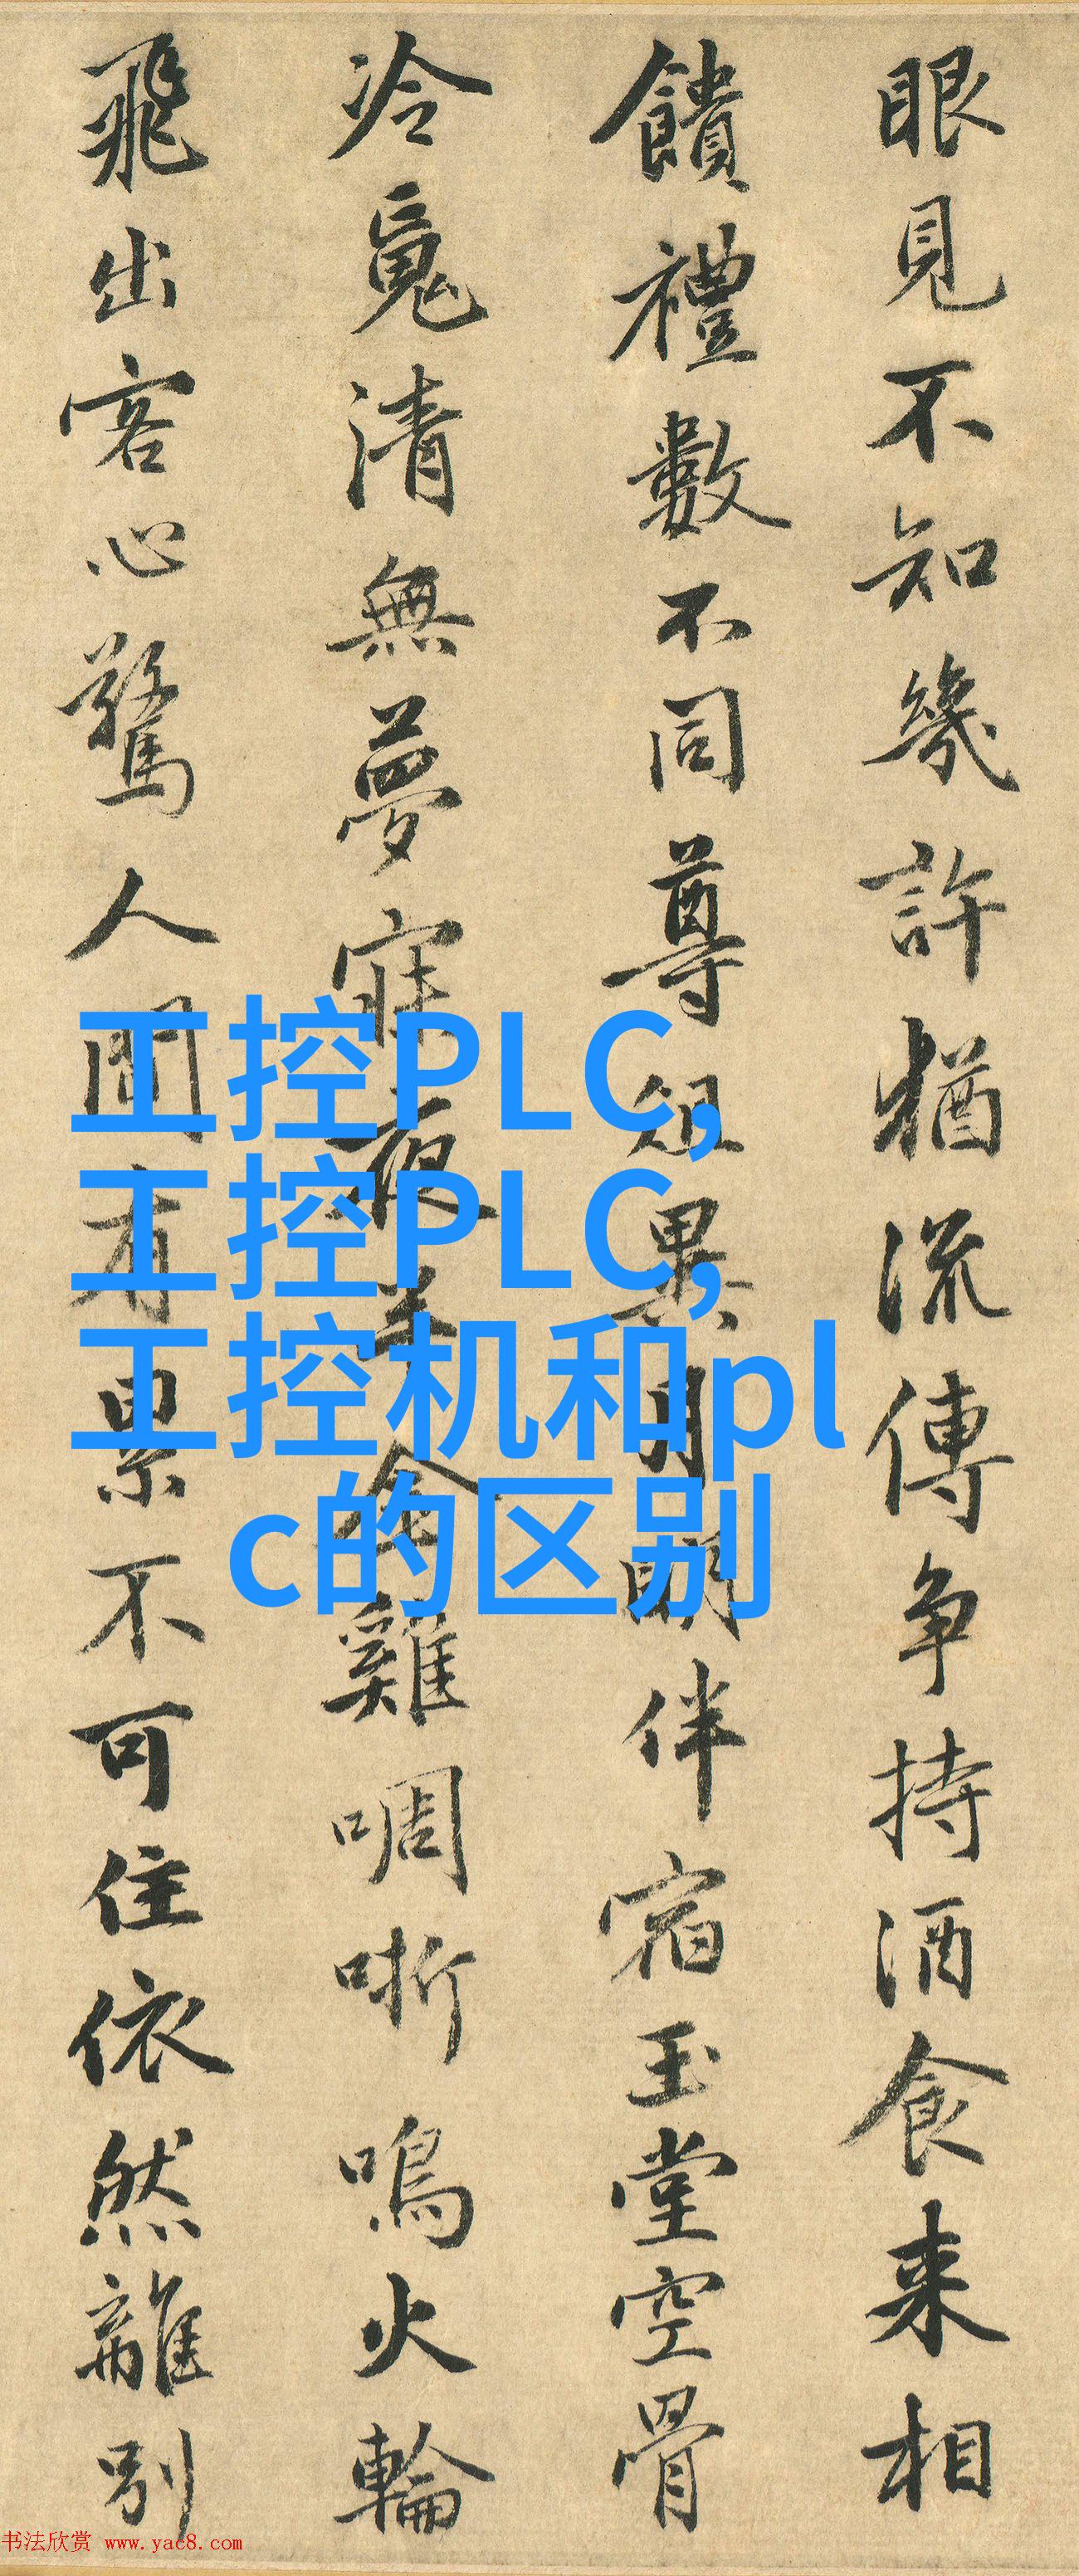 眼見不知幾許猶流傳争持酒食来相
饋禮數不同尊俎異月明伴宿玉堂空骨
冷䰟清無夢寐夜半金雞啁哳鳴火輪
飛出客心驚人間有累不可住依然離別
工控PLC,
工控PLC,
工控机和pl
c的区别
书法欣赏 www.yac8.com